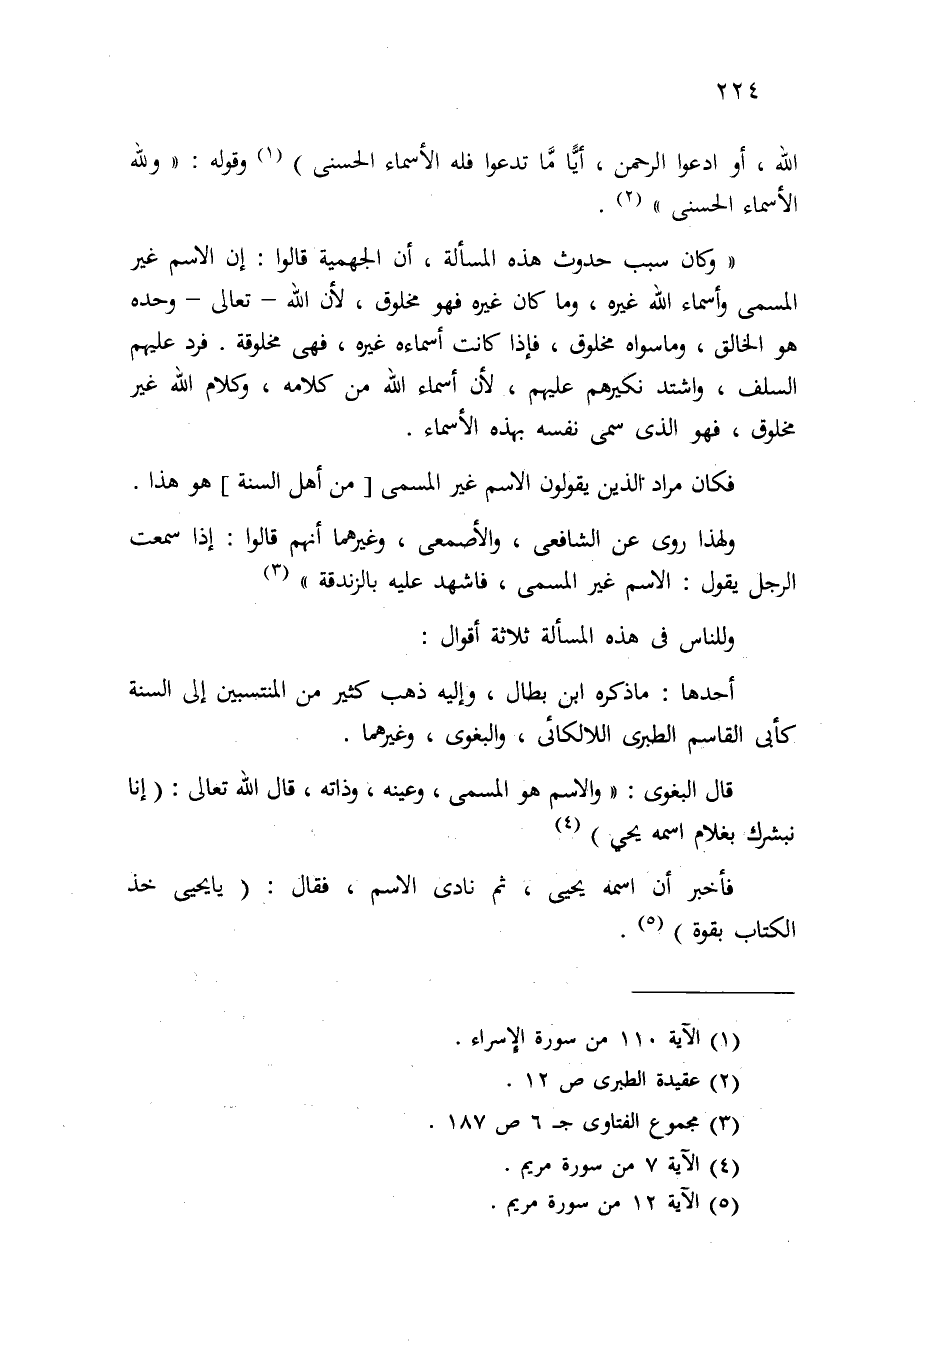 ٢٢٤
الله ، أو ادعوا الرحمن ، أيًّا مَّا تدعوا فله الأسماء الحسنى ) (١) وقوله : « ولله
الأسماء الحسنى » (٢) .
« وكان سبب حدوث هذه المسألة ، أن الجهمية قالوا : إن الاسم غير
المسمى وأسماء الله غيره ، وما كان غيره فهو مخلوق ، لأن الله – تعالى – وحده
هو الخالق ، وماسواه مخلوق ، فإذا كانت أسماءه غيره ، فهى مخلوقة . فرد عليهم
السلف ، واشتد نكيرهم عليهم ، لأن أسماء الله من كلامه ، وكلام الله غير
مخلوق ، فهو الذى سمى نفسه بهذه الأسماء .
فكان مراد الذين يقولون الاسم غير المسمى [ من أهل السنة ] هو هذا .
ولهذا روى عن الشافعى ، والأصمعى ، وغيرهما أنهم قالوا : إذا سمعت
الرجل يقول : الاسم غير المسمى ، فاشهد عليه بالزندقة » (٣)
وللناس فى هذه المسألة ثلاثة أقوال :
أحدها : ماذكره ابن بطال ، وإليه ذهب كثير من المنتسبين إلى السنة
كأبى القاسم الطبرى اللالكائى ، والبغوى ، وغيرهما .
قال البغوى : « والاسم هو المسمى ، وعينه ، وذاته ، قال الله تعالى : ( إنا
نبشرك بغلام اسمه يحي ) (٤)
فأخبر أن اسمه يحيى ، ثم نادى الاسم ، فقال : ( يايحيى خذ
الكتاب بقوة ) (٥) .
(١) الآية ١١٠ من سورة الإسراء .
(٢) عقيدة الطبرى ص ١٢ .
(٣) مجموع الفتاوى جـ ٦ ص ١٨٧ .
(٤) الآية ٧ من سورة مريم .
(٥) الآية ١٢ من سورة مريم .